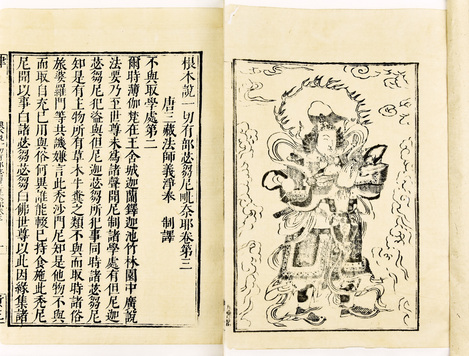 根本說一切有部苾芻尼毗奈耶卷第三
唐三藏法師義淨奉　制譯
不與取學處第二
爾時薄伽梵在王舍城迦蘭鐸迦池竹林園中廣說
法要乃至世尊未為諸聲聞尼制諸學處有但尼迦
苾芻尼犯盜與但尼迦苾芻所犯事同時諸苾芻尼
知是有主物所有草木牛糞之類不與而取時諸俗
旅婆羅門等共譏嫌言此禿沙門尼知是他物不與
而取自充已用與俗何異誰能輟已持食施此禿尼
尼聞以事白諸苾芻苾芻白佛世尊以此因緣集諸
律